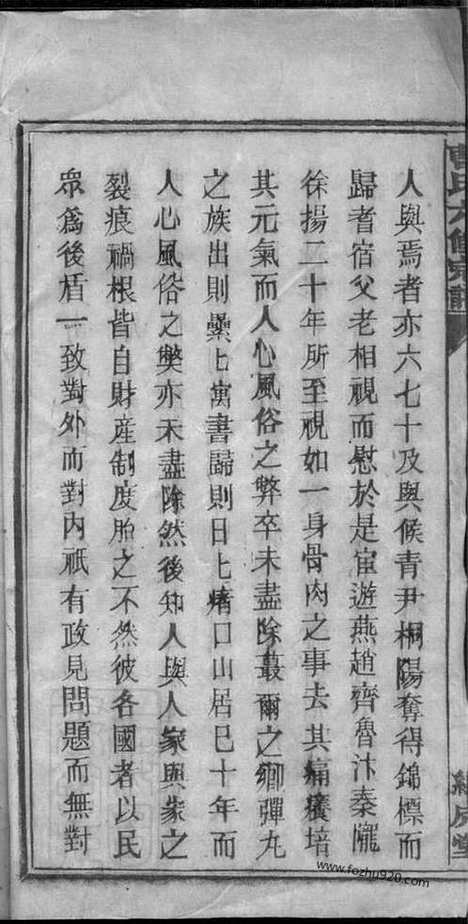 曹氏六修宗譜
人與焉者亦六七十及與候青尹桐陽奪得錦標而
歸者宿父老相視而慰於是宦遊燕趙齊魯汴秦隴
徐揚二十年所至視如一身骨肉之事去其痛癢培
其元氣而人心風俗之弊卒未盡除蕞爾之鄉彈丸
之族出則纍匕寓書歸則日匕瘏口山居已十年而
人心風俗之獘亦未盡除然後知人與人家與家之
裂痕禍根皆自財産制度胎之不然彼各國者以民
眾為後盾一致對外而對內祇有政見問題而無對
www.fozhu920.com